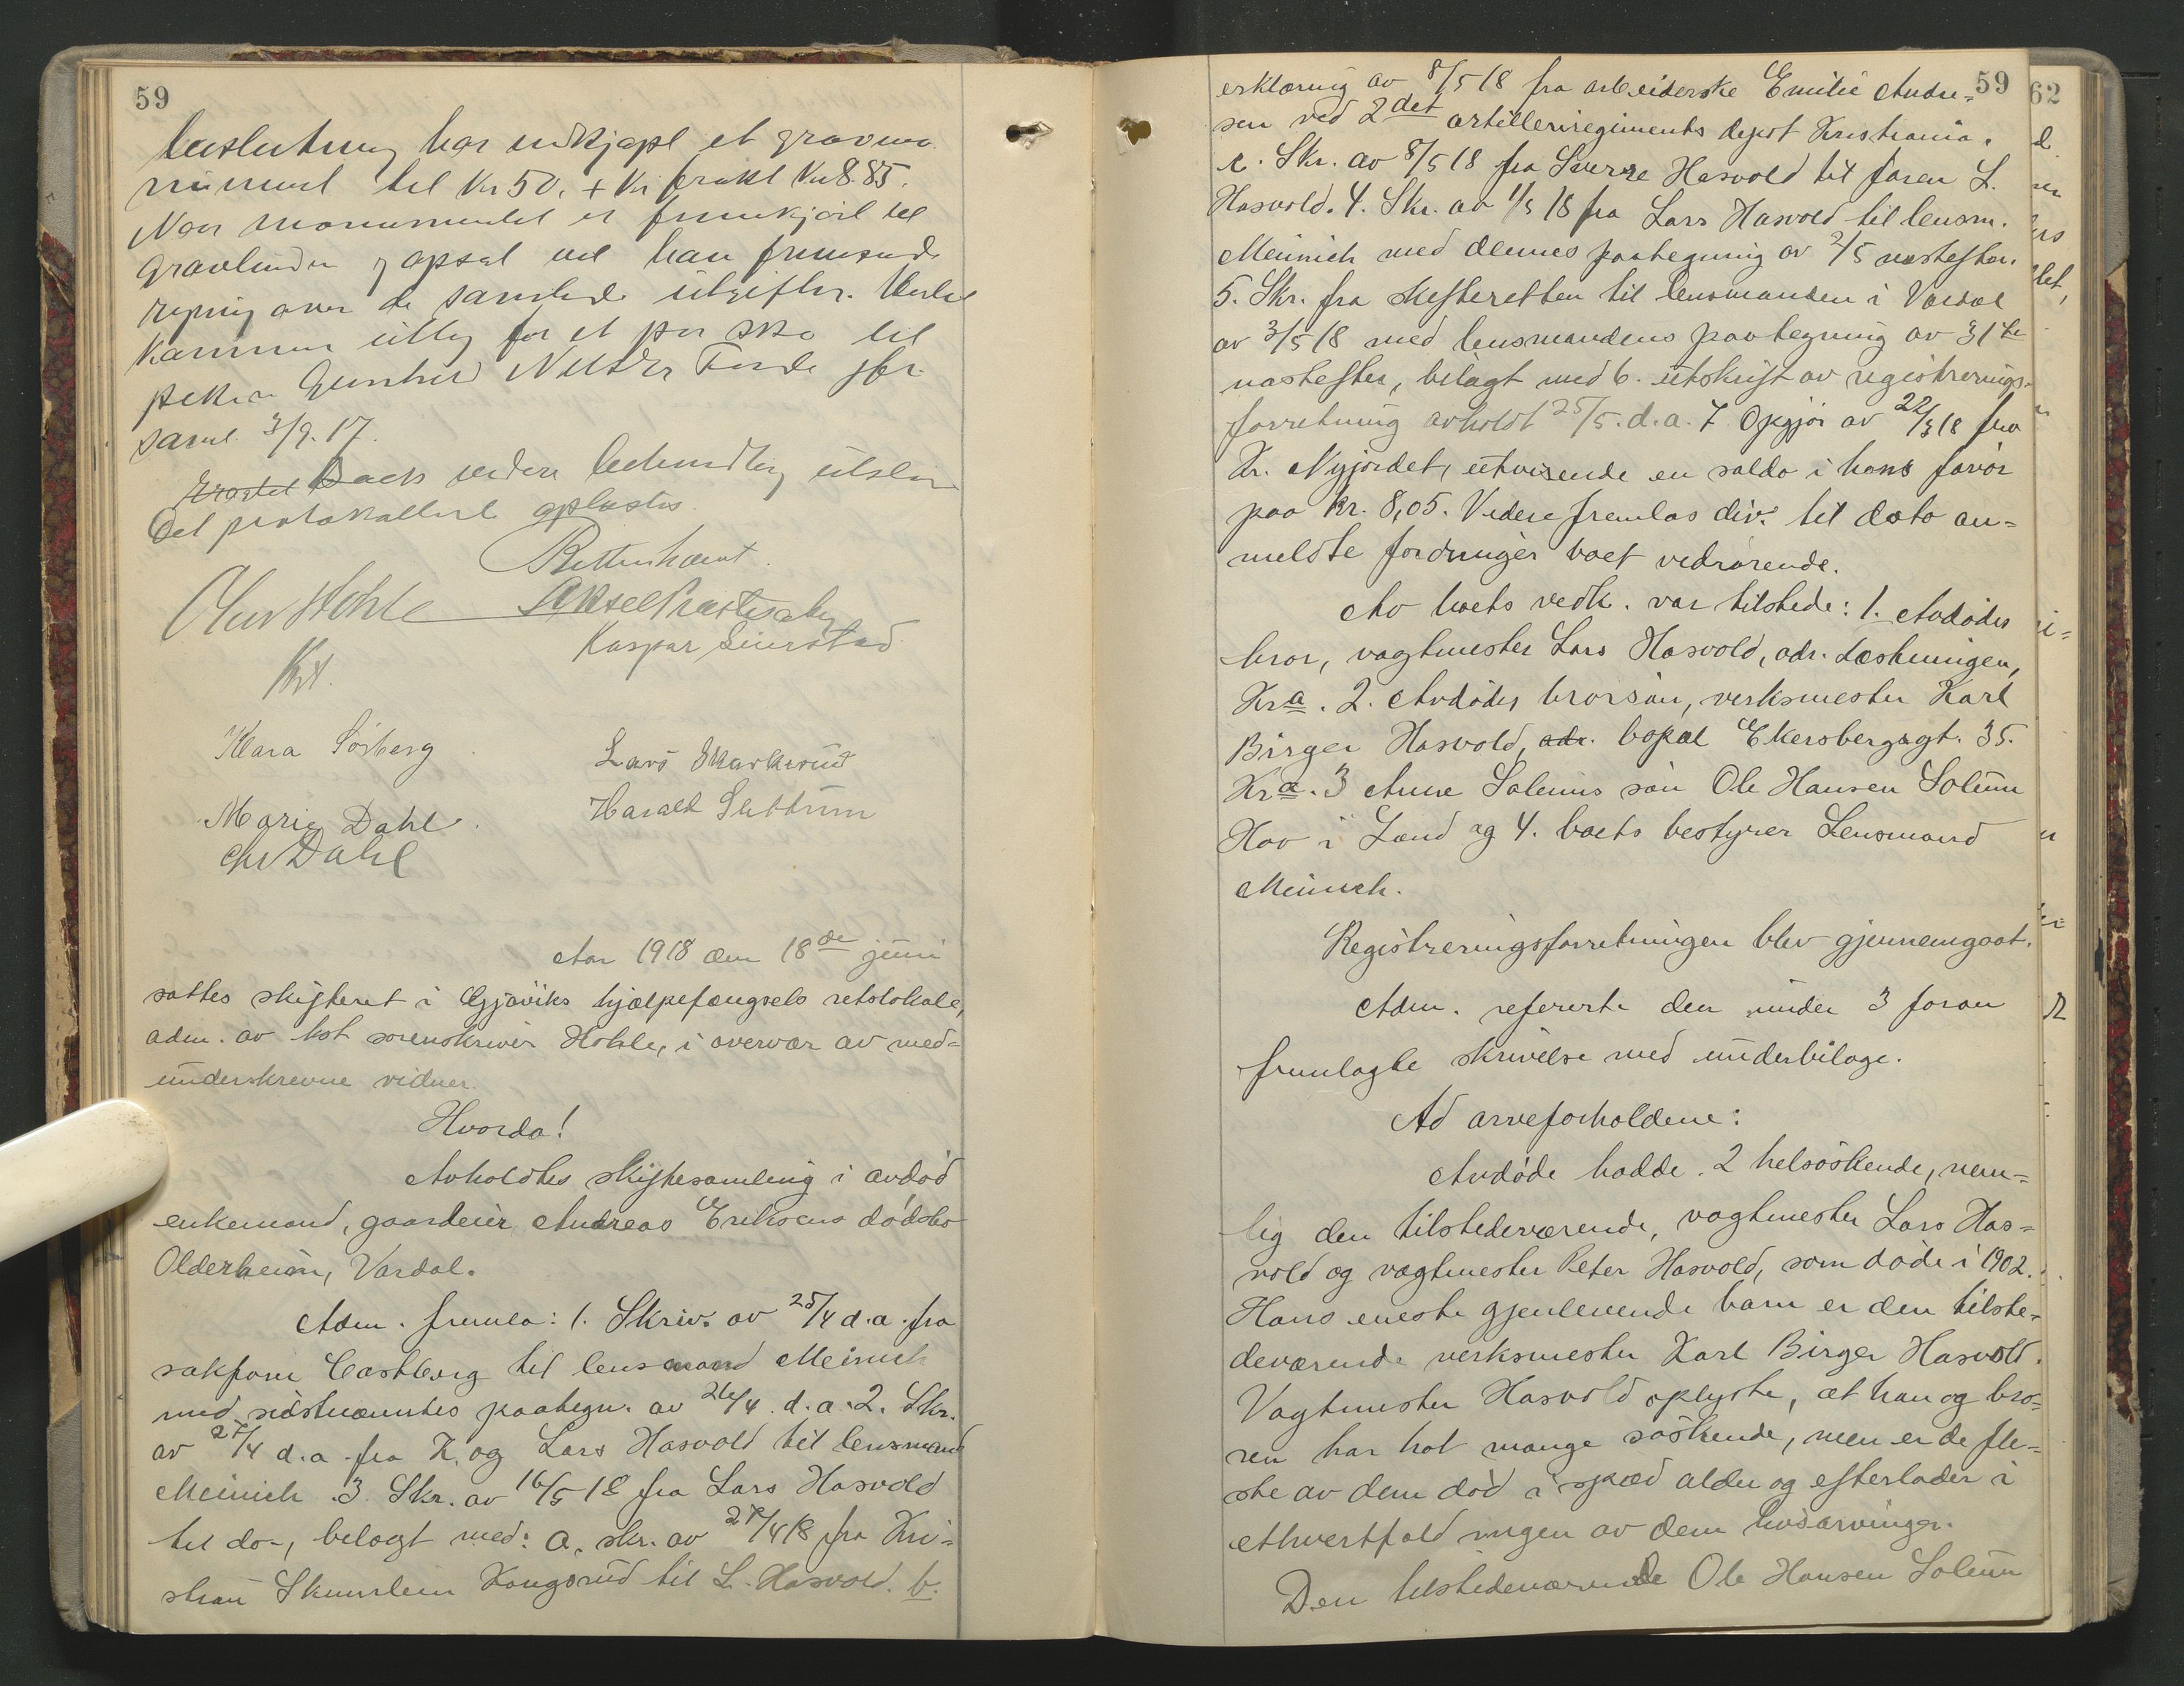 59
beslutning har indkjøpt et gravmo
nument til Kr 50, + Kr frakt Kr 8.85.
Naar monumentet er fremkjørt til
Gravlunden og opsat vil han fremsende
regning over de samlede utgifter. Hertil
kommer utlæg for et par sko til
piken Gunhild
saml. 3/9. 17.
Boets videre behandling utsler
Det protokollerte oplæstes.
Retten hævet.
Olav Hohle Aksel
Kaspar Linerstad
Kst.
Klara Sørberg
Lars Skarkerud
Marie Dahl
Harald Slettum
Chr Dahl
Aar 1918 den 18de juni
sattes skifteret i Gjøviks hjælpefængsels retslokale,
adm. av kst sorenskriver Hohle, i overvær av med-
underskrevne vidner.
Hvorda!
Avholdtes skiftesamling i avdød
enkemand, gaardeier Andreas Eriksens dødsbo
Olderheim, Vardal.
Adm. fremla: 1. Skriv. av 25/4 d.a. fra
sakfører Castberg til lensmand Meinich
med sidstnævntes paategn. av 26/4. d.a. 2. Skr.
av 27/4 d.a. fra K. og Lars Hasvold til lensmand
Meinich. 3. Skr. av 16/5 18 fra Lars Hasvold
til do-, belagt med: a. skr. av 27/4 18 fra Kri-
stian Skumslein Kongsrud til L. Hasvold. b.
59
62
erklæring av 8/5 18 fra arbeiderske Emilie Andre-
sen ved 2det artilleriregiments depot Kristiania.
c. Skr. av 8/5 18 fra Sverre Hasvold til faren L.
Hasvold. 4. Skr. av 1/5 18 fra Lars Hasvold til lensm.
Meinich med dennes paategning av 2/5 næstefter.
5. Skr. fra skifteretten til lensmanden i Vardal
av 3/5 18 med lensmandens paategning av 31te
næstefter, bilagt med 6. utskrift av registrerings-
forretning avholdt 25/5. d.a. 7. Opgjør av 22/5 18 fra
Kr. Nyjordet, utvisende en saldo i hans favør
paa Kr. 8,05. Videre fremlas div. til dato an-
meldte fordringer boet vedrørende.
Av boets vedk. var tilstede: 1. Avdødes
bror, vagtmester Lars Hasvold, adr. Fæstningen,
Kra. 2. Avdødes brorsøn, verksmester Karl
Birger Hasvold, adr. bopæl Ekersbergsgt. 35.
Kra. 3 Anne Solums søn Ole Hansen Solum
Hov i Land og 4. boets bestyrer Lensmand
Meinich.
Registreringsforretningen blev gjennemgaat.
Adm. refererte den under 3 foran
fremlagte skrivelse med underbilage.
Ad arveforholdene:
Avdøde hadde 2 helsøskende, nem-
lig den tilstedeværende, vagtmester Lars Has-
vold og vagtmester Peter Hasvold, som døde i 1902.
Hans eneste gjenlevende barn er den tilste-
deværende verksmester Karl Birger Hasvold.
Vagtmester Hasvold oplyste, at han og bro-
ren har hat mange søskende, men er de fle-
ste av dem død i spæd alder og efterlader i
ethvertfald ingen av dem livsarvinger.
Den tilstedeværende Ole Hansen Solum